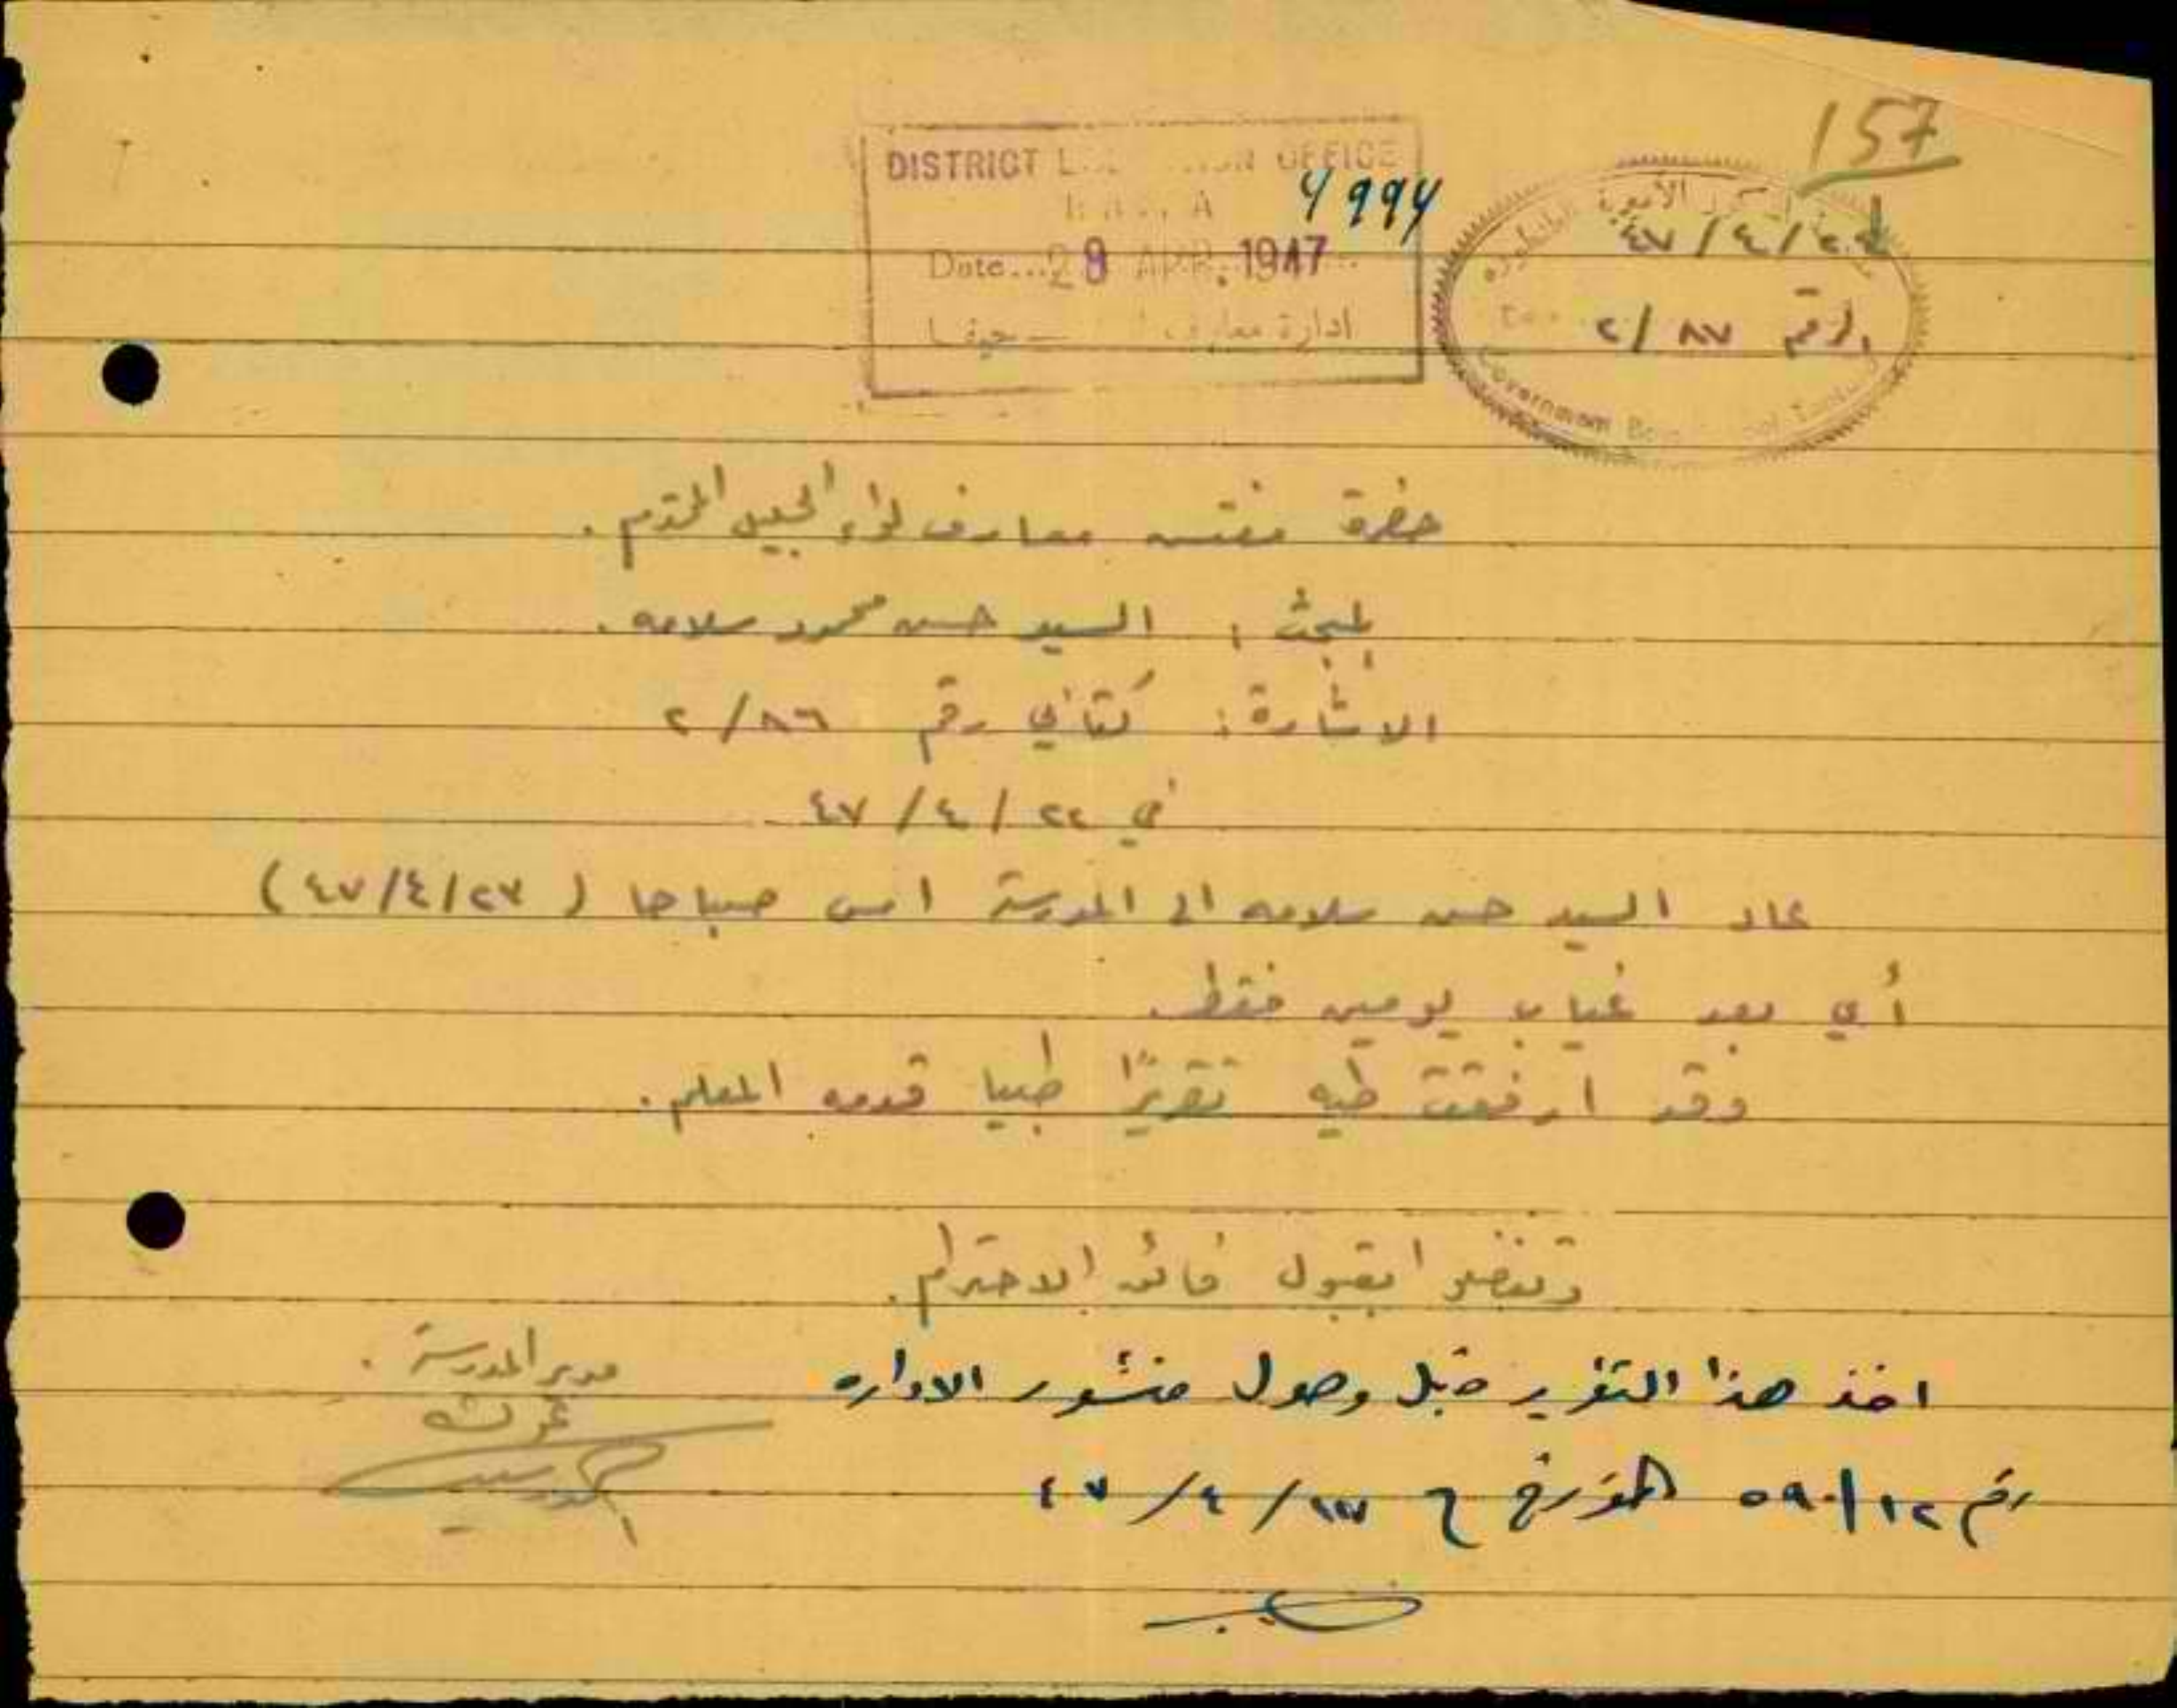 157
DISTRICT OFFICE
4994
Date... 28 APR. 1947
ادارة معارف حيفا
٤٧/٤/٢٤
الرقم ٢/٨٧
Government
حضرة مفتش معارف لواء الجليل المحترم.
المبحث: السيد حسن محمود سلامه.
الاشارة: كتابي رقم ٢/٨٦
في ٤٧/٤/٢٢
عاد السيد حسن سلامه الى المدرسة امس صباحا (٤٧/٤/٢٣)
أي بعد غياب يومين فقط.
وقد ارفقت طيه تقريرًا طبيا قدمه المعلم.
وتفضلوا بقبول فائق الاحترام.
مدير المدرسة.
اخذ هذا التقرير قبل وصول منشور الاداره
رقم ٥٩٠/١٢ المؤرخ في ٤٧/٤/١٧